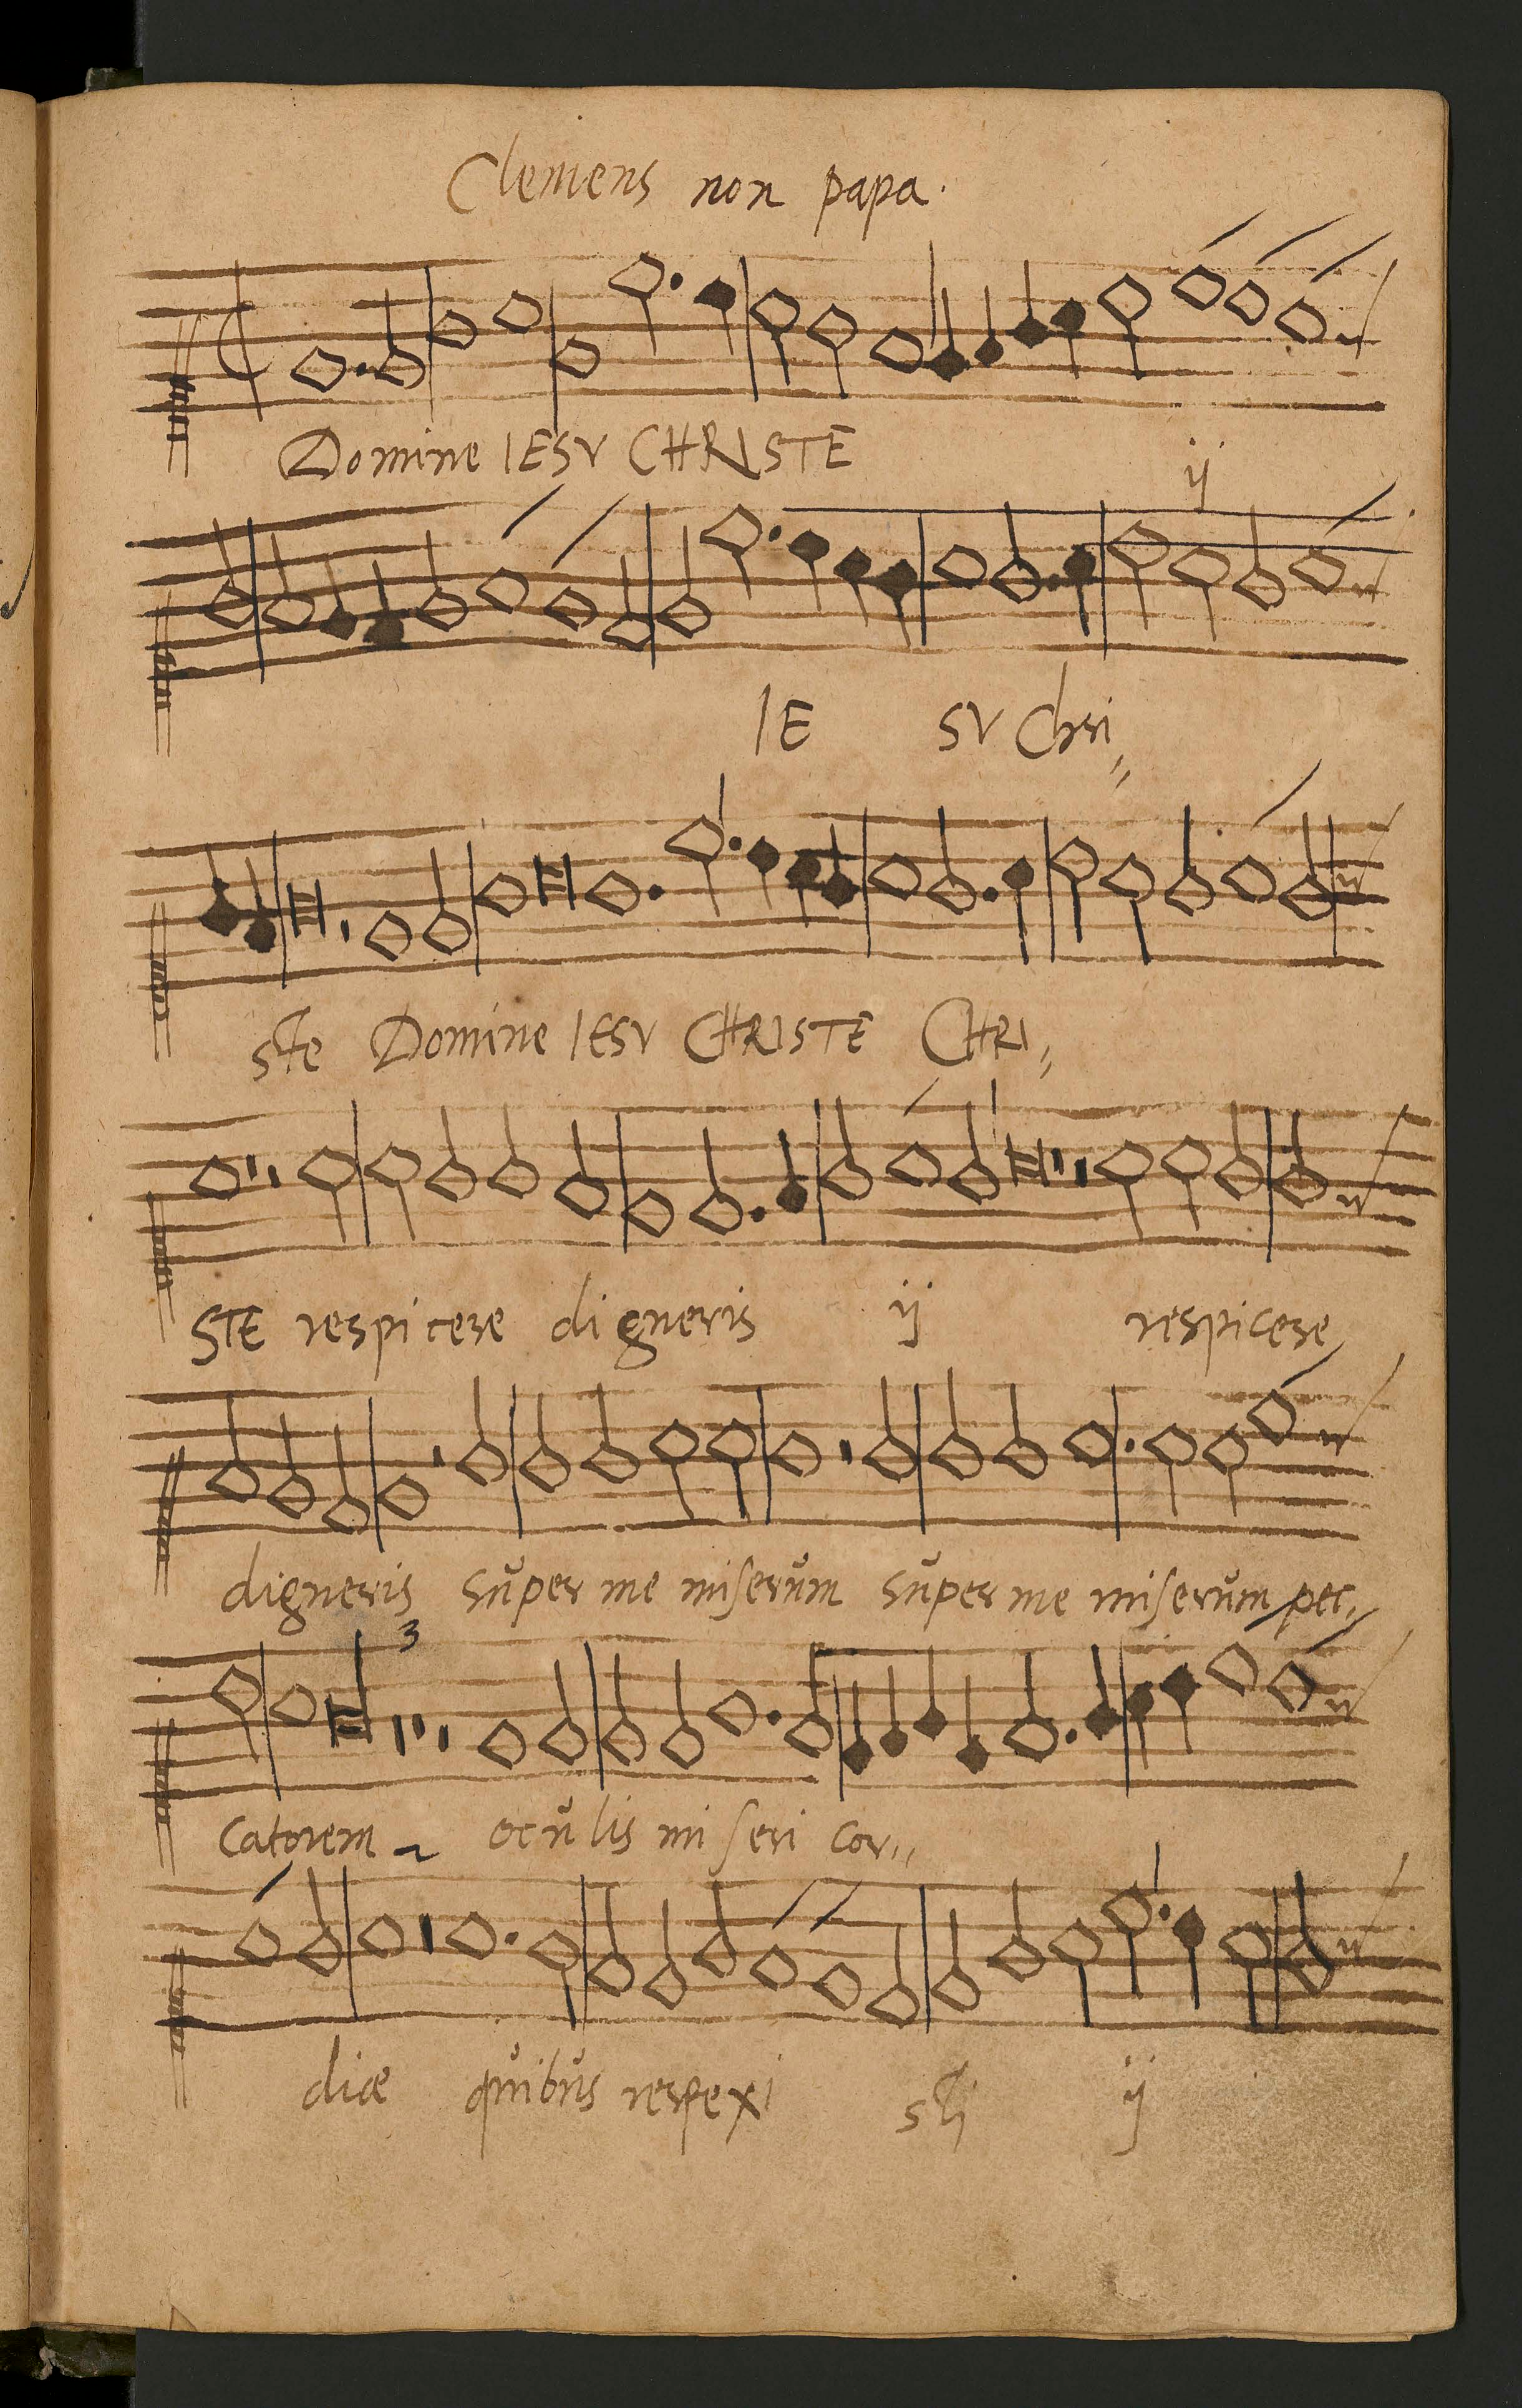 Clemens non papa.
Domine IESV CHRISTE ij
IE SV Chri,,
ste Domine IESV CHRISTE CHRI,,
STE respicere digneris ij respicere
digneris sŭper me miserŭm sŭper me miserŭm pec,,
3
catorem ocŭlis miseri cor,,
diæ quibŭs respexi sti ij